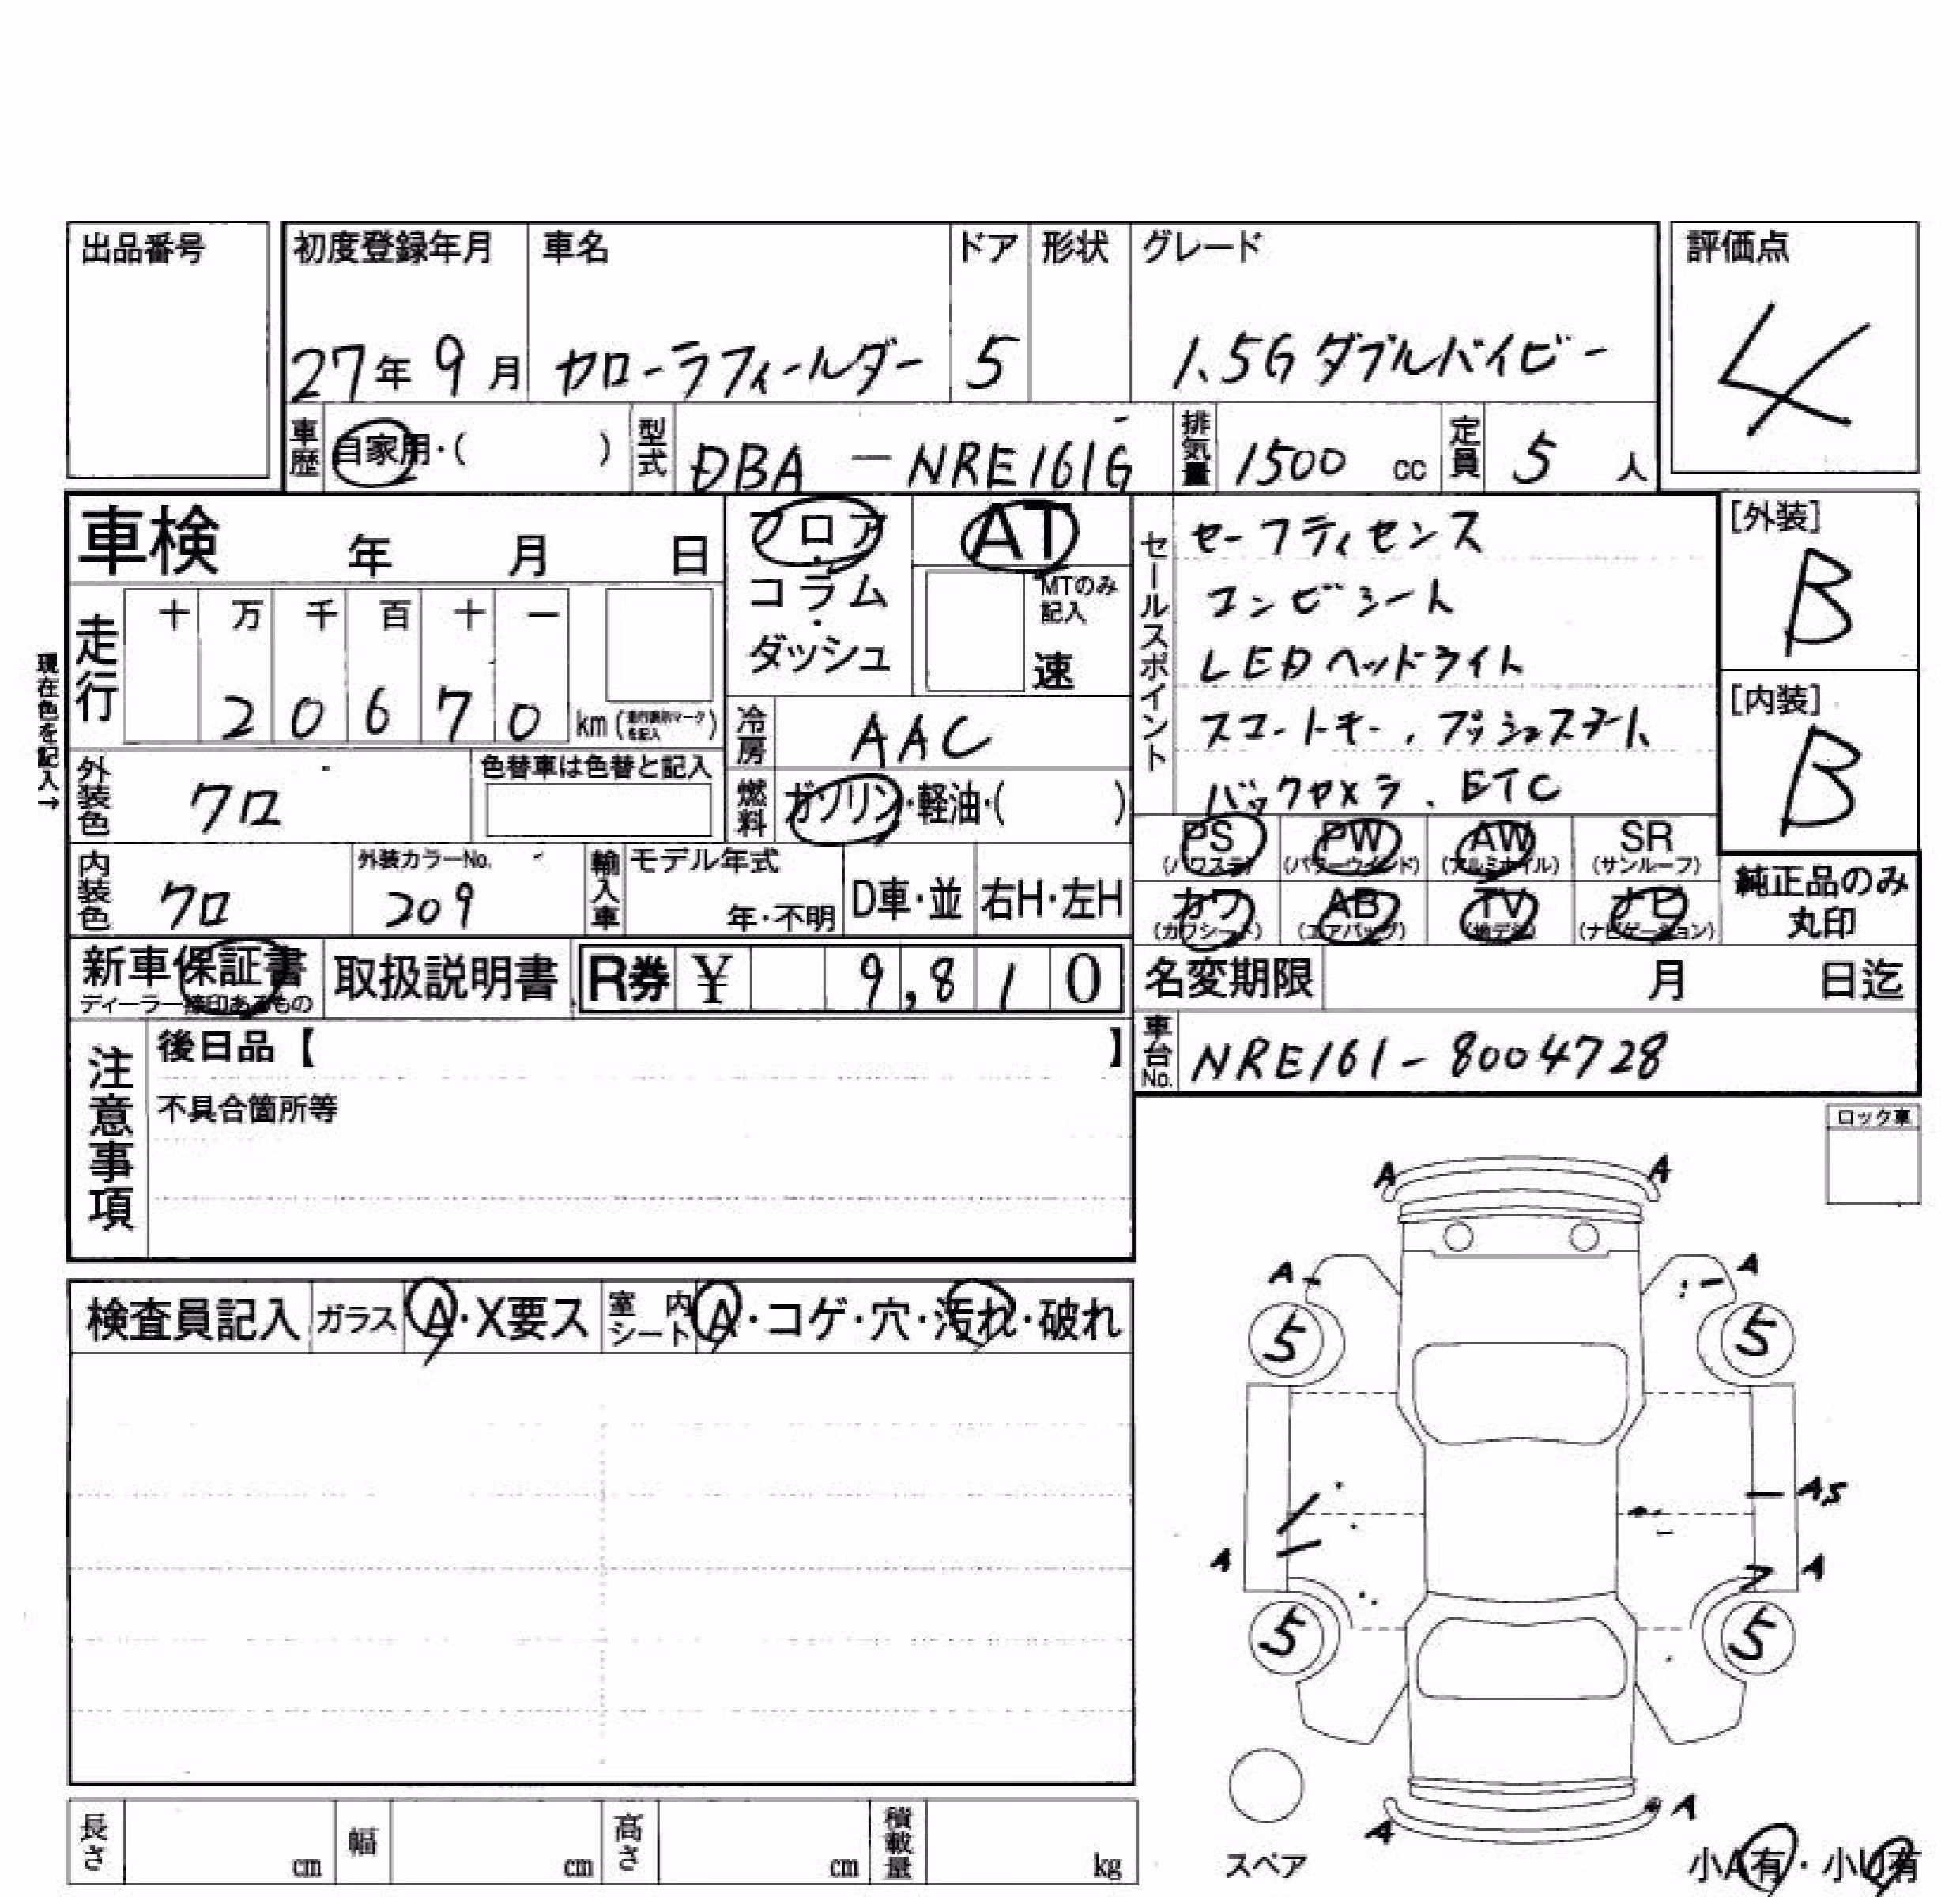 出品番号
初度登録年月 車名 ドア 形状 グレード
評価点
27年 9月 カローラフィールダー 5 1.5G ダブルバイビー
4
車歴 自家用・( ) 型式 DBA - NRE161G 排気量 1500 cc 定員 5 人
車検 年 月 日
フロア・コラム・ダッシュ
AT
MTのみ記入
速
セールスポイント
セーフティセンス
コンビシート
LEDヘッドライト
スマートキー、プッシュスタート
バックカメラ、ETC
[外装]
B
[内装]
B
現在色を記入→
走行 十 万 千 百 十 一
2 0 6 7 0 km (走行表示マークを記入)
冷房 AAC
外装色 クロ 色替車は色替と記入
燃料 ガソリン・軽油・( )
PS (パワステ) PW (パワーウインド) AW (アルミホイル) SR (サンルーフ)
カワ (カワシート) AB (エアバッグ) TV (地デジ) ナビ (ナビゲーション)
純正品のみ丸印
内装色 クロ 外装カラーNo. 209 輸入車 モデル年式 年・不明 D車・並 右H・左H
新車保証書 取扱説明書 R券 ¥ 9,810
ディーラー捺印あるもの
名変期限 月 日迄
車台No. NRE161-8004728
注意事項
後日品【 】
不具合箇所等
ロック車
検査員記入 ガラス A・X要ス 室内シート A・コゲ・穴・汚れ・破れ
A A
A A
5 5
AS
A A
5 5
A A
スペア
小A有・小U有
長さ cm 幅 cm 高さ cm 積載量 kg